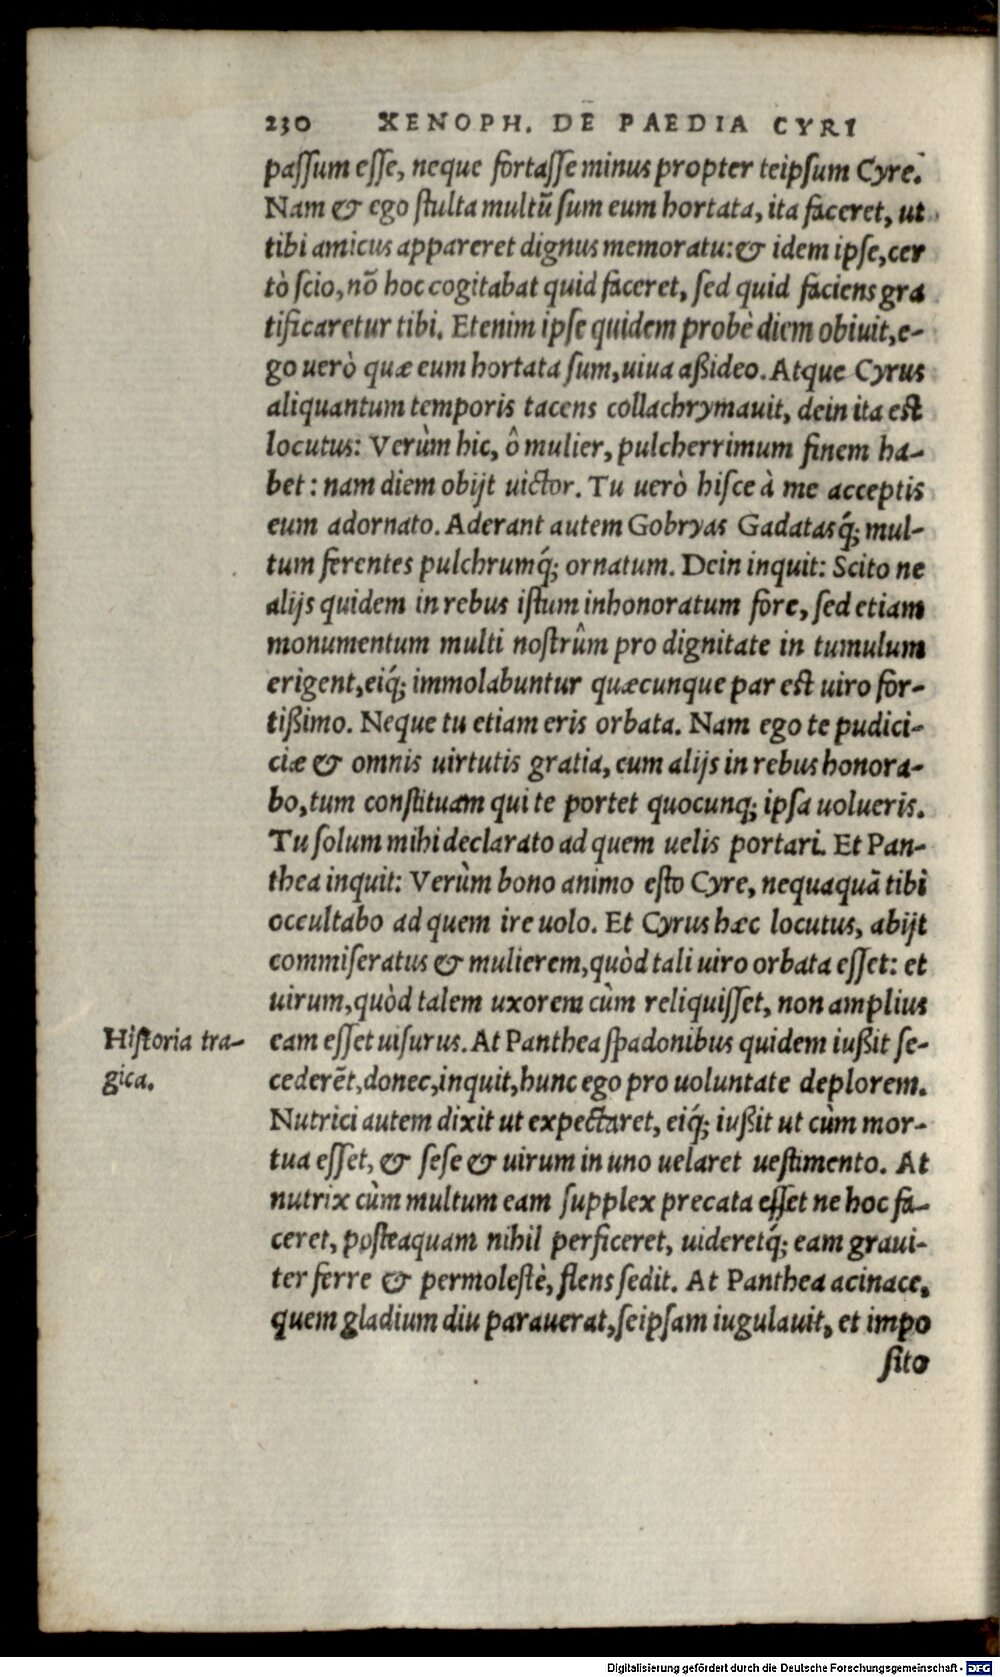 230 XENOPH. DE PAEDIA CYRI
paſſum eſſe, neque fortaſſe minus propter teipſum Cyre.
Nam & ego ſtulta multū ſum eum hortata, ita faceret, ut
tibi amicus appareret dignus memoratu: & idem ipſe, cer
tò ſcio, nō hoc cogitabat quid faceret, ſed quid faciens gra
tificaretur tibi. Etenim ipſe quidem probè diem obiuit, e-
go uerò quæ eum hortata ſum, uiua aßideo. Atque Cyrus
aliquantum temporis tacens collachrymauit, dein ita eſt
locutus: Verùm hic, ô mulier, pulcherrimum finem ha-
bet: nam diem obijt uictor. Tu uerò hiſce à me acceptis
eum adornato. Aderant autem Gobryas Gadatasq́; mul-
tum ferentes pulchrumq́; ornatum. Dein inquit: Scito ne
alijs quidem in rebus iſtum inhonoratum fore, ſed etiam
monumentum multi noſtrûm pro dignitate in tumulum
erigent, eiq́; immolabuntur quæcunque par eſt uiro for-
tißimo. Neque tu etiam eris orbata. Nam ego te pudici-
ciæ & omnis uirtutis gratia, cum alijs in rebus honora-
bo, tum conſtituam qui te portet quocunq; ipſa uolueris.
Tu ſolum mihi declarato ad quem uelis portari. Et Pan-
thea inquit: Verùm bono animo eſto Cyre, nequaquā tibi
occultabo ad quem ire uolo. Et Cyrus hæc locutus, abijt
commiſeratus & mulierem, quòd tali uiro orbata eſſet: et
uirum, quòd talem uxorem cùm reliquiſſet, non amplius
Hiſtoria tra-
gica.
eam eſſet uiſurus. At Panthea ſpadonibus quidem iußit ſe-
cederēt, donec, inquit, hunc ego pro uoluntate deplorem.
Nutrici autem dixit ut expectaret, eiq́; iußit ut cùm mor-
tua eſſet, & ſeſe & uirum in uno uelaret ueſtimento. At
nutrix cùm multum eam ſupplex precata eſſet ne hoc fa-
ceret, poſteaquam nihil perficeret, uideretq́; eam graui-
ter ferre & permoleſtè, flens ſedit. At Panthea acinace,
quem gladium diu parauerat, ſeipſam iugulauit, et impo
ſito
Digitalisierung gefördert durch die Deutsche Forschungsgemeinschaft - DFG